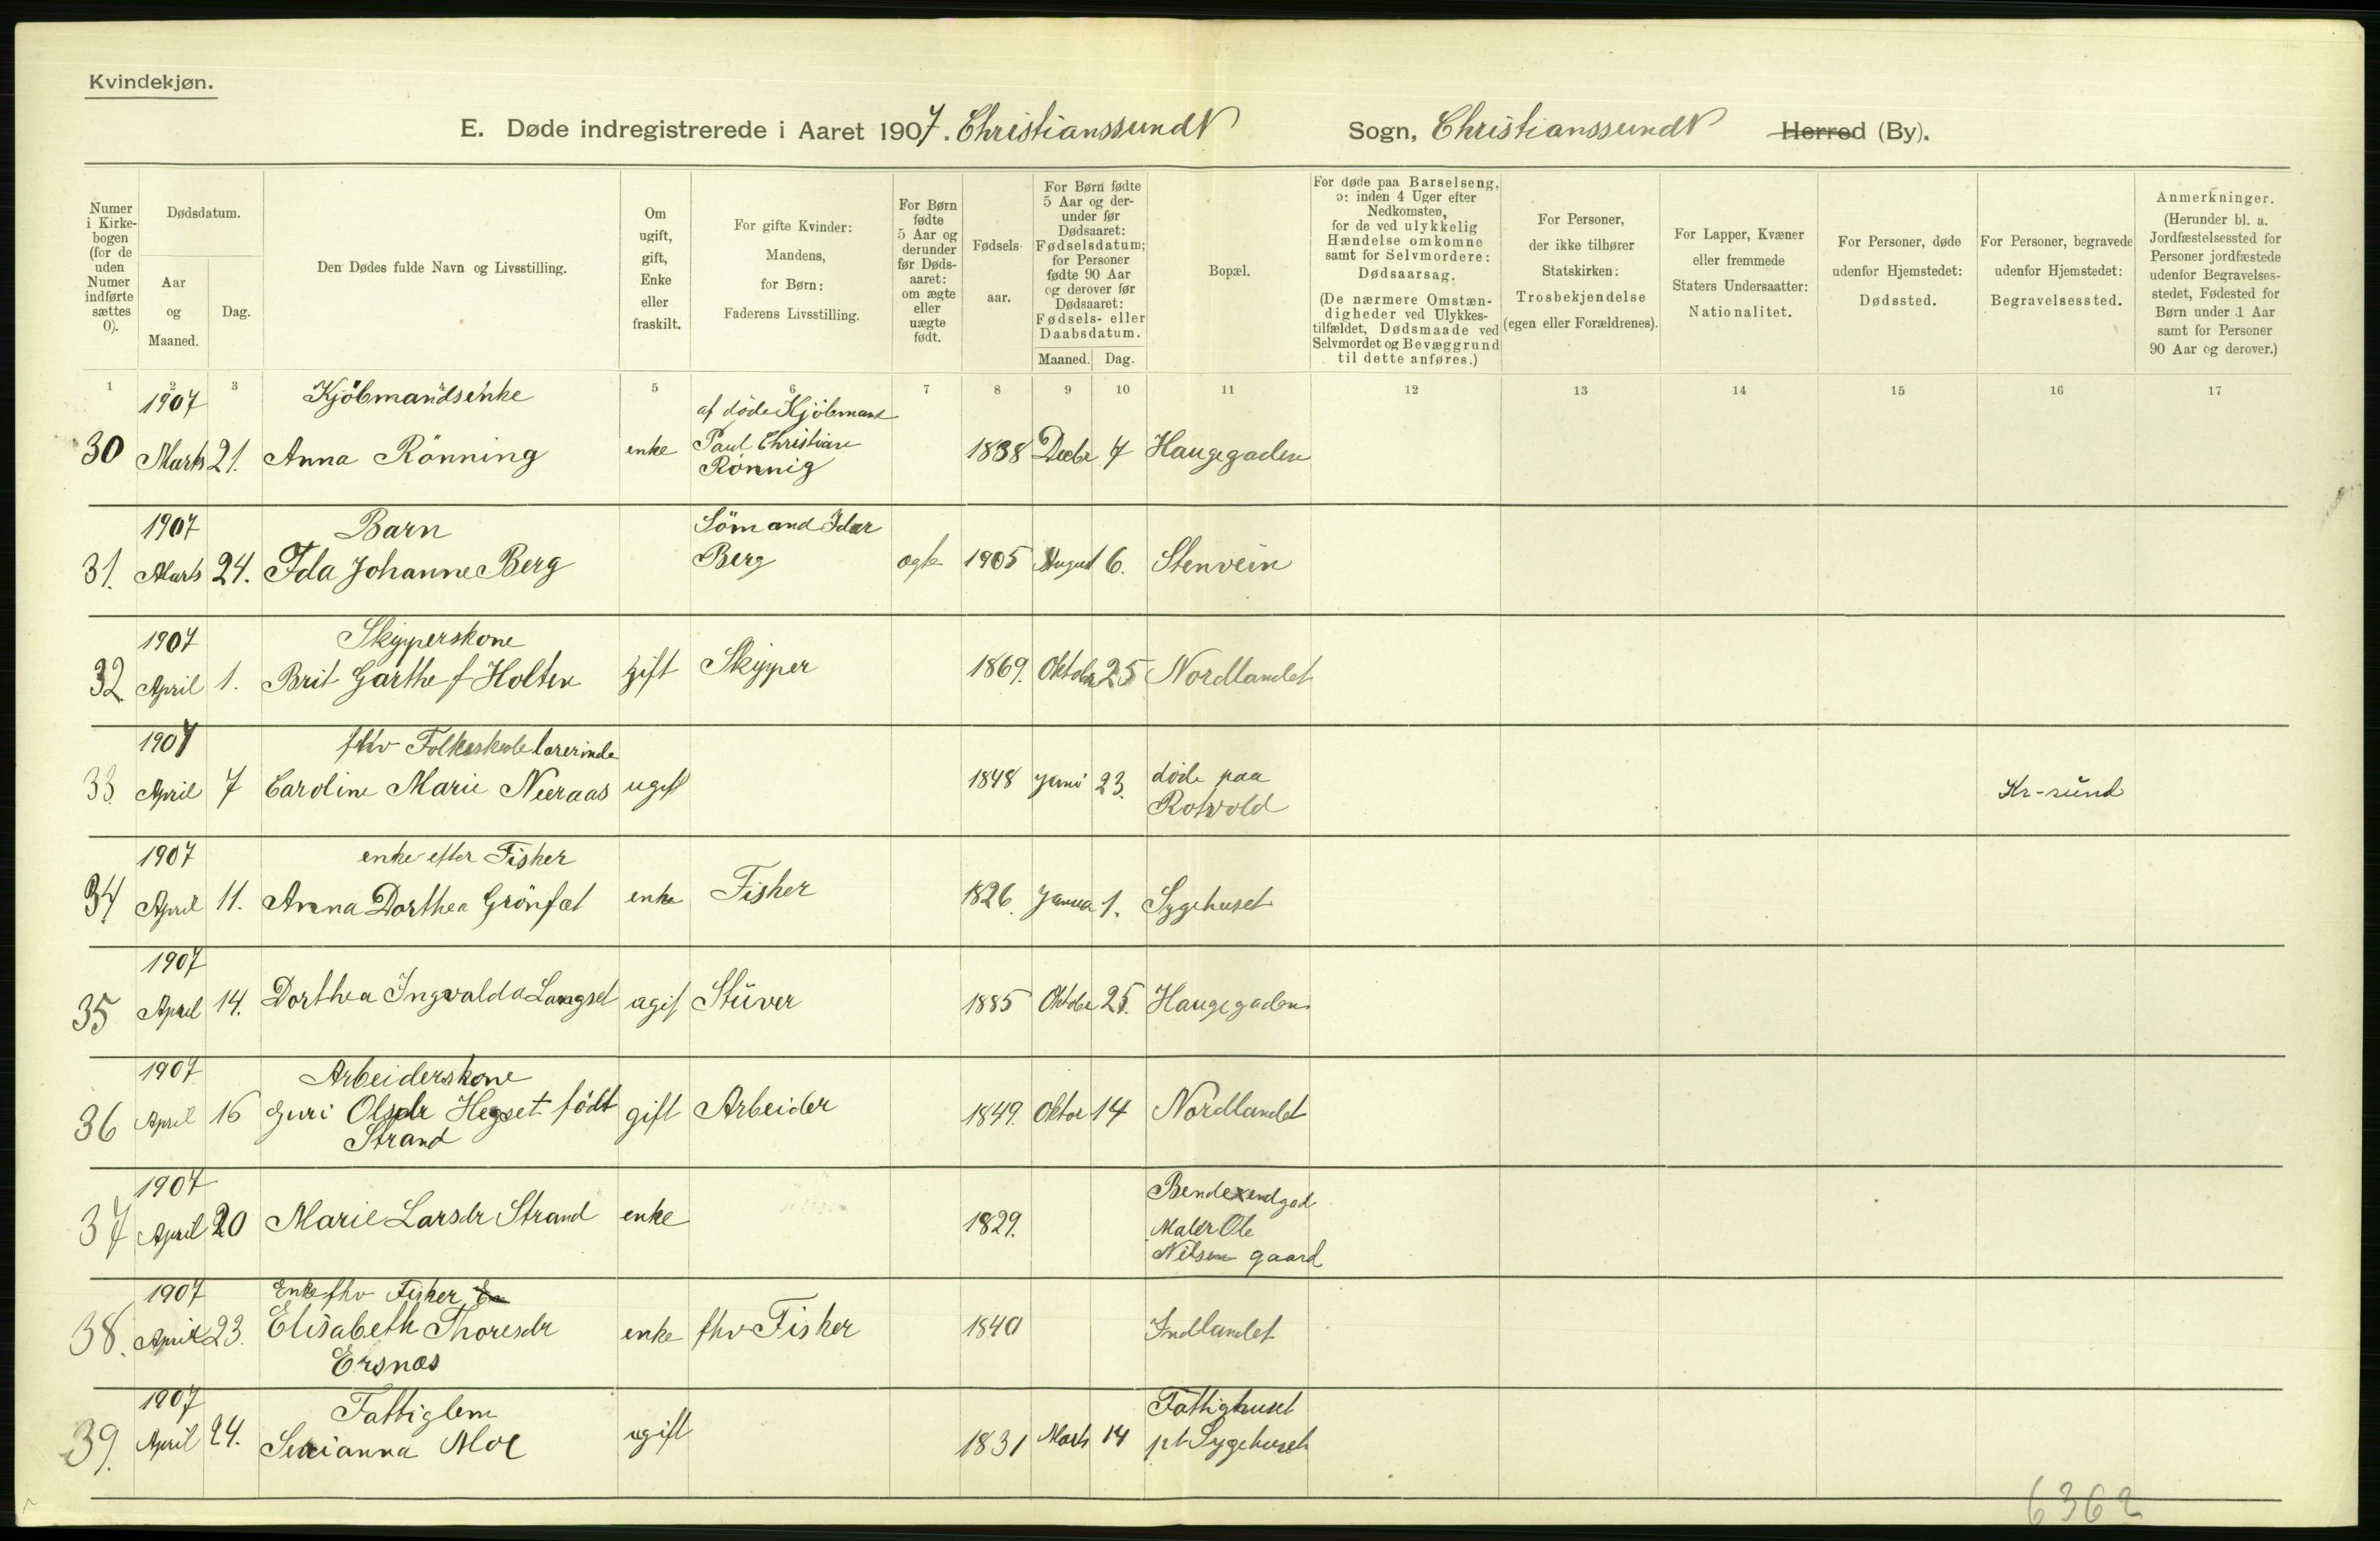 Kvindekjøn.
E. Døde indregistrerede i Aaret 1907. Christianssund N Sogn, Christianssund N Herred (By).
Numer i Kirkebogen (for de uden Numer indførte sættes 0).
Dødsdatum.
Aar og Maaned.
Dag.
Den Dødes fulde Navn og Livsstilling.
Om ugift, gift, Enke eller fraskilt.
For gifte Kvinder: Mandens, for Børn: Faderens Livsstilling.
For Børn fødte 5 Aar og derunder før Dødsaaret: om ægte eller uægte født.
Fødselsaar.
For Børn fødte 5 Aar og derunder før Dødsaaret: Fødselsdatum; for Personer fødte 90 Aar og derover før Dødsaaret: Fødsels- eller Daabsdatum.
Maaned. Dag.
Bopæl.
For døde paa Barselseng, ɔ: inden 4 Uger efter Nedkomsten, for de ved ulykkelig Hændelse omkomne samt for Selvmordere: Dødsaarsag.
(De nærmere Omstændigheder ved Ulykkestilfældet, Dødsmaade ved Selvmordet og Bevæggrund til dette anføres.)
For Personer, der ikke tilhører Statskirken: Trosbekjendelse (egen eller Forældrenes).
For Lapper, Kvæner eller fremmede Staters Undersaatter: Nationalitet.
For Personer, døde udenfor Hjemstedet: Dødssted.
For Personer, begravede udenfor Hjemstedet: Begravelsessted.
Anmerkninger. (Herunder bl. a. Jordfæstelsessted for Personer jordfæstede udenfor Begravelsesstedet, Fødested for Børn under 1 Aar samt for Personer 90 Aar og derover.)
1 2 3 4 5 6 7 8 9 10 11 12 13 14 15 16 17
1907 Kjöbmandsenke af döde Kjöbmand
30 Marts 21. Anna Rönning enke Paul Christian 1838 Decbr 7 Haugegaden
Rönnig
1907 Barn Sömand Idar
31. Marts 24. Ida Johanne Berg Berg ægte 1905 August 6. Stenvein
1907 Skipperskone
32 April 1. Brit Garthe f Holten gift Skipper 1869. Oktober 25 Nordlandet
1907 fhv Folkeskolelærerinde
33. April 7 Caroline Marie Neeraas ugift 1848 Juni 23. döde paa Kr-sund
Rotvold
1907 enke efter Fisker
34 April 11. Anna Dorthea Grönset enke Fisker 1826. Januar 1. Sygehuset
1907
35 April 14. Dorthea Ingvalda Langset ugift Stüver 1885 Oktober 25. Haugegaden
1907 Arbeiderskone
36 April 16 Guri Olsdr Hegset födt gift Arbeider 1849. Oktor 14 Nordlandet
Strand
1907 Bendexendgad
37 April 20 Marie Larsdr Strand enke 1829. Maler Ole
Nilsen gaard
1907 Enke fhv Fisker En
38. April 23. Elisabeth Thoresdr enke fhv Fisker 1840 Indlandet
Ersnæs
1907 Fattiglem Fattighuset
39. April 24. Serianna Moe ugift 1831 Marts 14 pt Sygehuset
6362